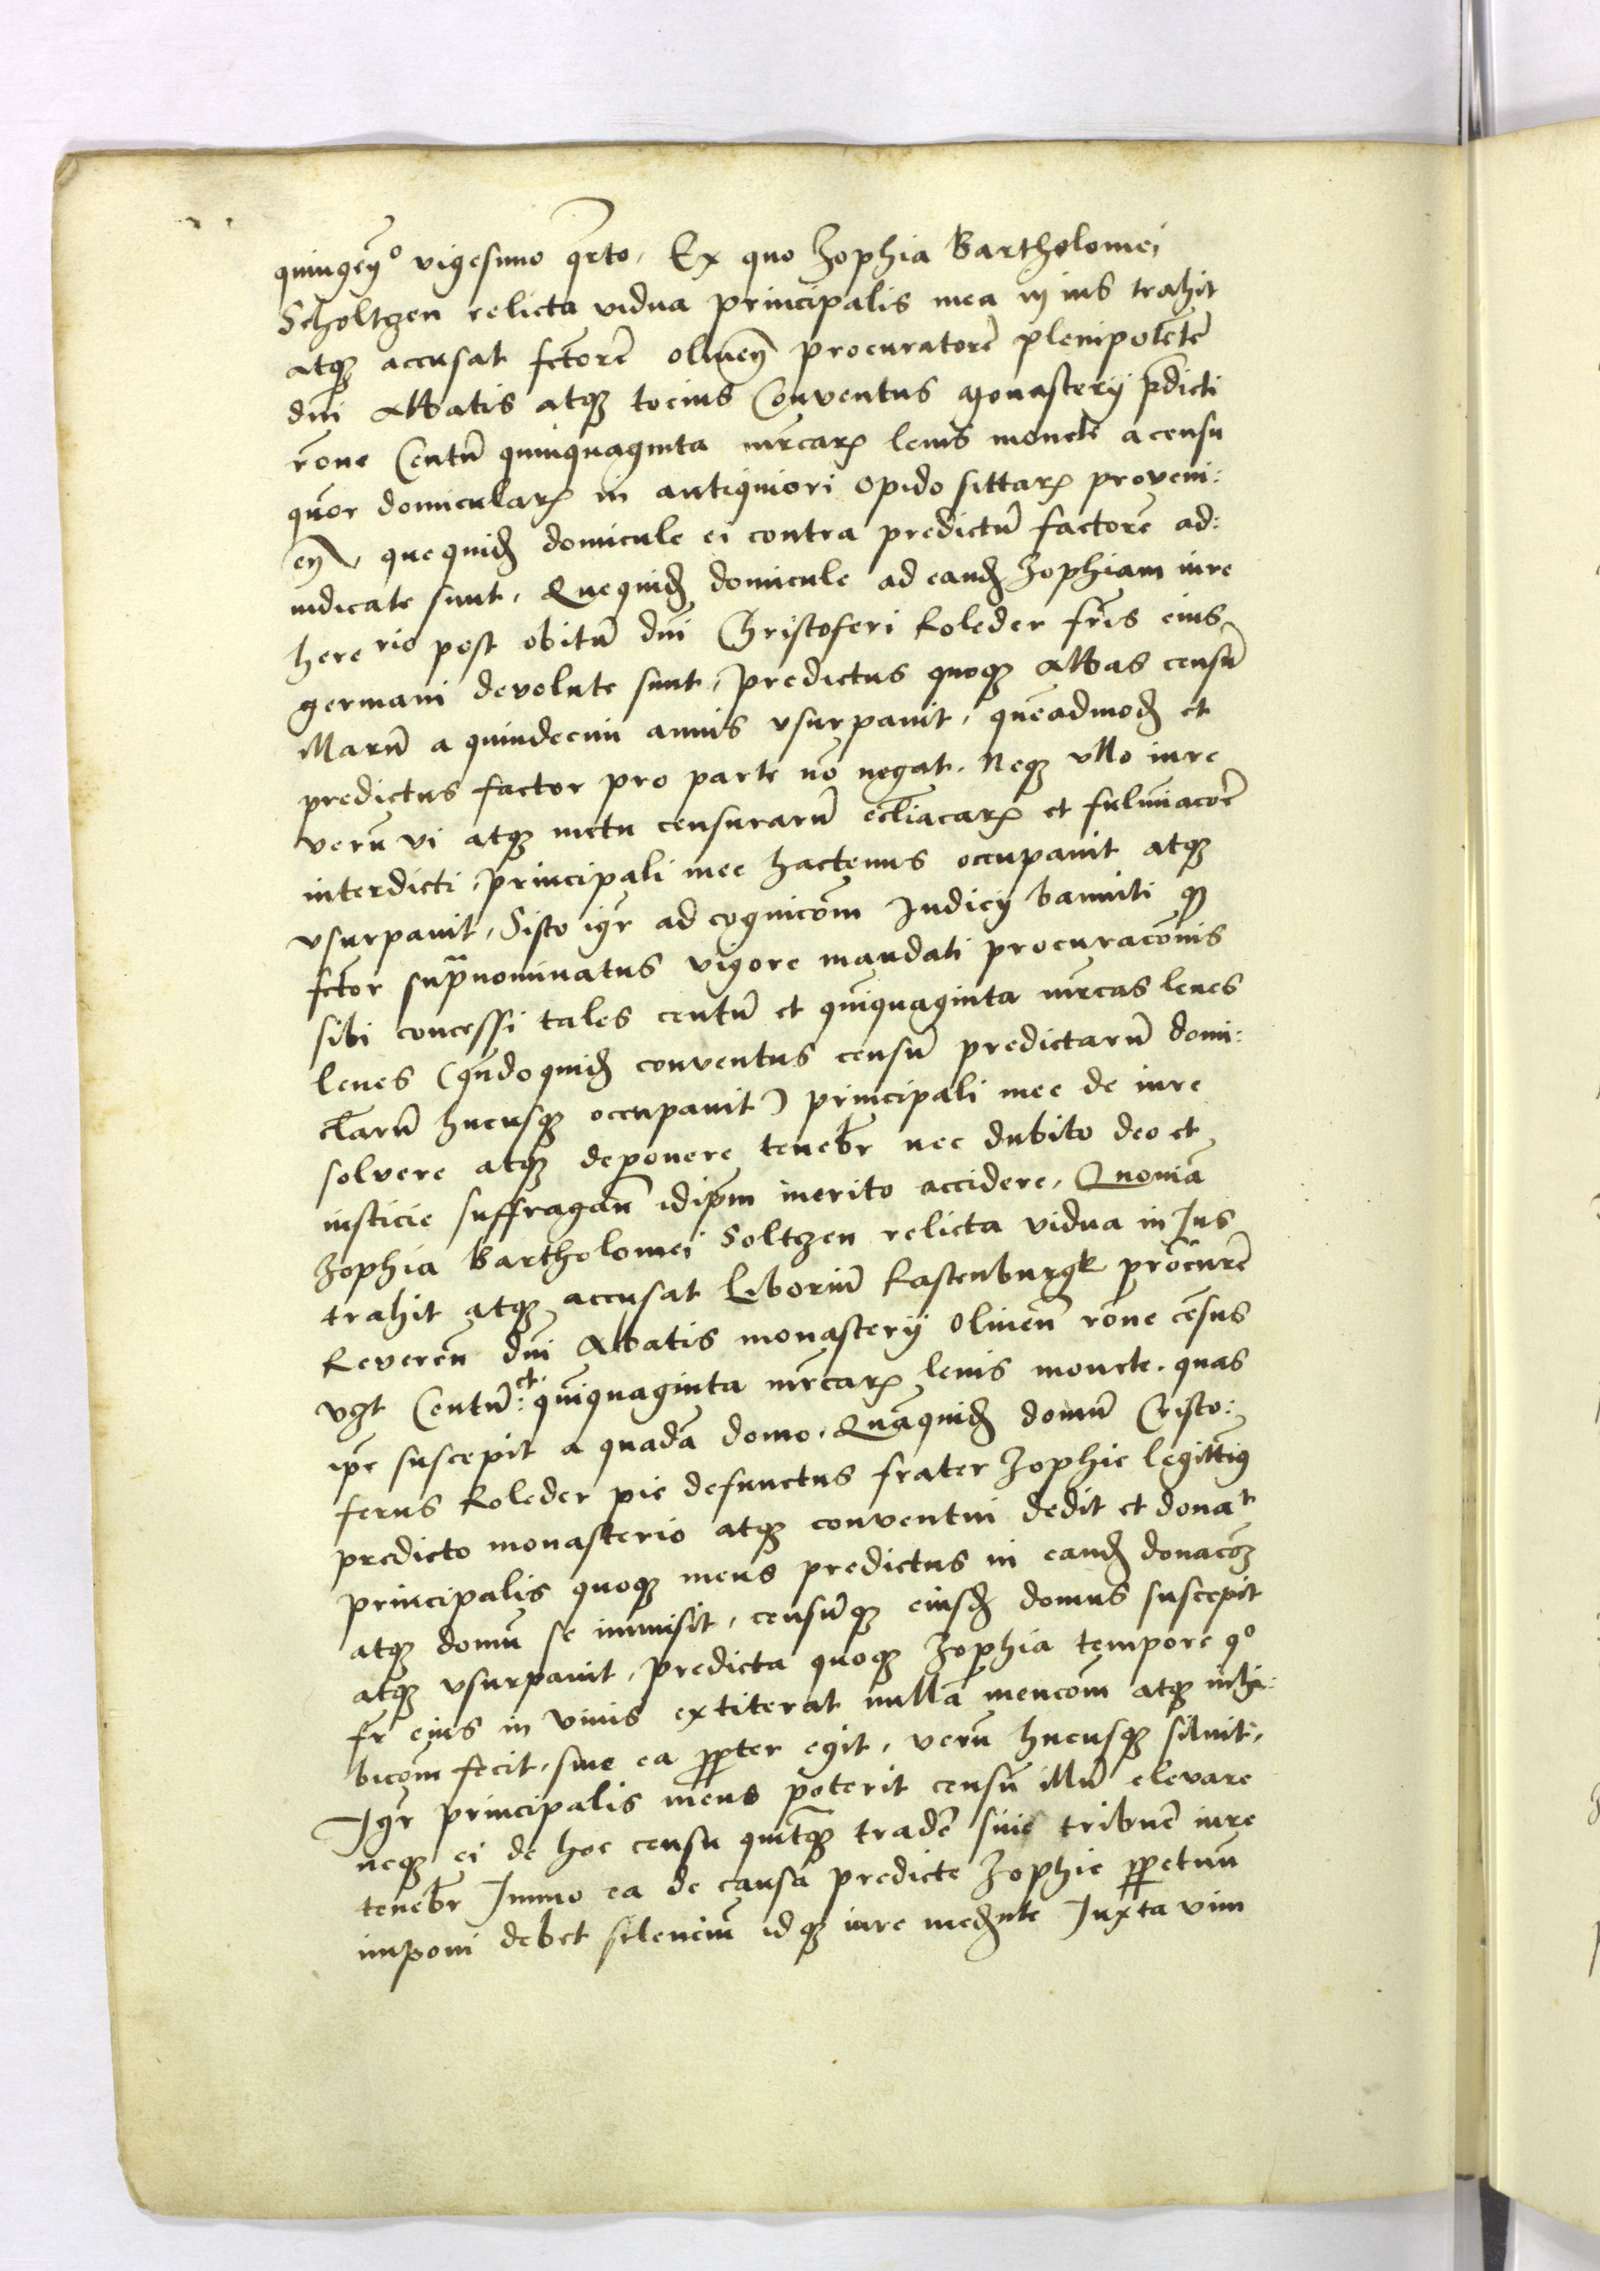 quingeñ° vigesimo qrto, Ex quo Zophia Bartholomei
Scholtzen relicta vidua principalis mea in ius trahit
atqꝫ accusat fctorē oliueñ procuratorē plenipotētē
dnī Abbatis atqꝫ tocius Conventus Monasterij p̄dicti
rōne Centū quinquaginta mr̄carꝝ leuis monete a censu
quor domicularꝝ in antiquiori opido sittarꝝ proveni:
eñ, que quidꝫ domicule ei contra predictū factorē ad:
iudicate sunt, Que quidꝫ domicule ad eandꝫ Zophiam iure
here rio post obitū dnī Christoferi Koleder fr̄is eius
germani devolute sunt, predictus quoqꝫ Abbas censū
illarū a quindecim annis vsurpauit, quēadmodꝫ et
predictus factor pro parte nō negat. Neqꝫ vllo iure
verū vi atqꝫ metu censurarū ecl̄iacarꝝ et fulmīacōē
interdicti, principali mee hactenus occupauit atqꝫ
vsurpauit, Sisto igr̄ ad cognicōm Judicij banniti qꝫ
fctor supranominatus vigore mandati procuracōnis
sibi concessi tales centū et quīquaginta mr̄cas leues
leues (qn̄doquidꝫ conventus censū predictarū domi:
clarū hucusqꝫ occupauit) principali mee de iure
solvere atqꝫ deponere tenebr̄ nec dubito deo et
iusticie suffragañ idip̄m merito accidere, Quoniā
Zophia Bartholomei Soltzen relicta vidua in Jus
trahit atqꝫ accusat Liboriū Rastenburgk procūrē
Reverēn dnī Abbatis monasterij Oliuēn rōne cēsus
vꝫt Centū: et quīquaginta mr̄carꝝ leuis monete. quas
ip̄e suscepit a quadā domo, Quāquidꝫ domū Cristo:
ferus Koleder pie defunctus frater Zophie legittīꝰ
predicto monasterio atqꝫ conventui dedit et donat
principalis quoqꝫ meus predictus in eandꝫ donacōꝫ
atqꝫ domū se immisit, censūqꝫ eiusdꝫ domus suscepit
atqꝫ vsurpauit, predicta quoqꝫ Zophia tempore q°
fr̄ eius in vivis extiterat nullā mencōm atqꝫ inhi:
bicōm fecit, siue ea ꝓpter egit, verū hucusqꝫ siluit,
Igr̄ principalis meus poterit censū illū elevare
neqꝫ ei de hoc censu quitqꝫ tradē siue tribuē iure
tenebr̄ Immo ea de causa predicte Zophie ꝑpetuū
imponi debet silenciū idqꝫ iure medn̄te Juxta vim